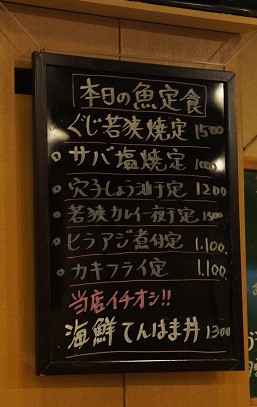 本日の魚定食
ぐじ若狭焼定 1500
サバ塩焼定 1000
穴子しょう油干定 1200
若狭カレイ一夜干定 1500
ヒラアジ煮付定 1.100.
カキフライ定 1.100.
当店イチオシ!!
海鮮てんはま丼 1300